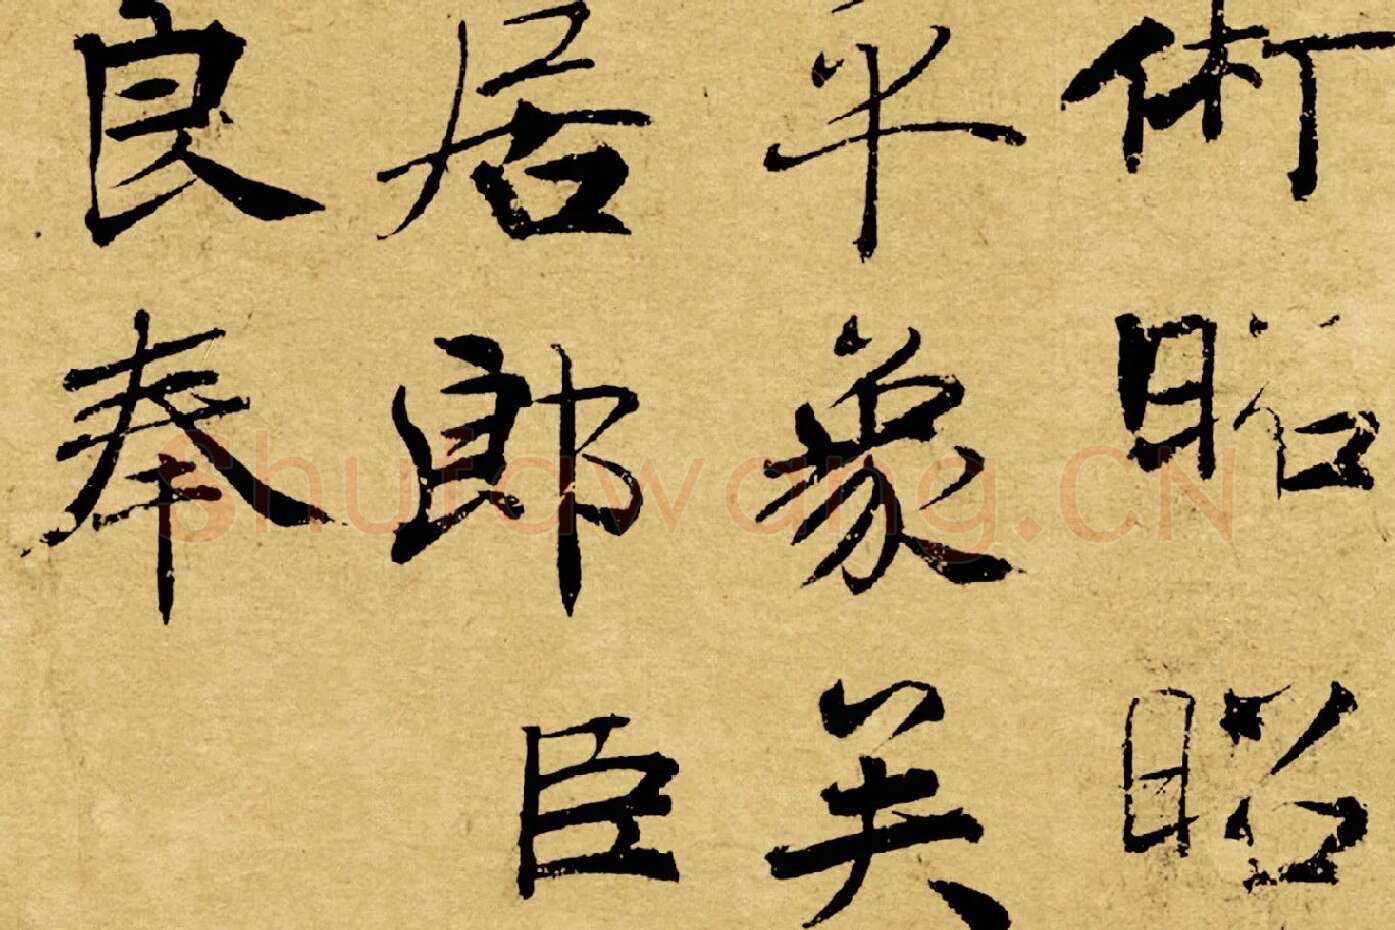 術昭昭
乎象矣
居郎臣
良奉
Shufawang.CN